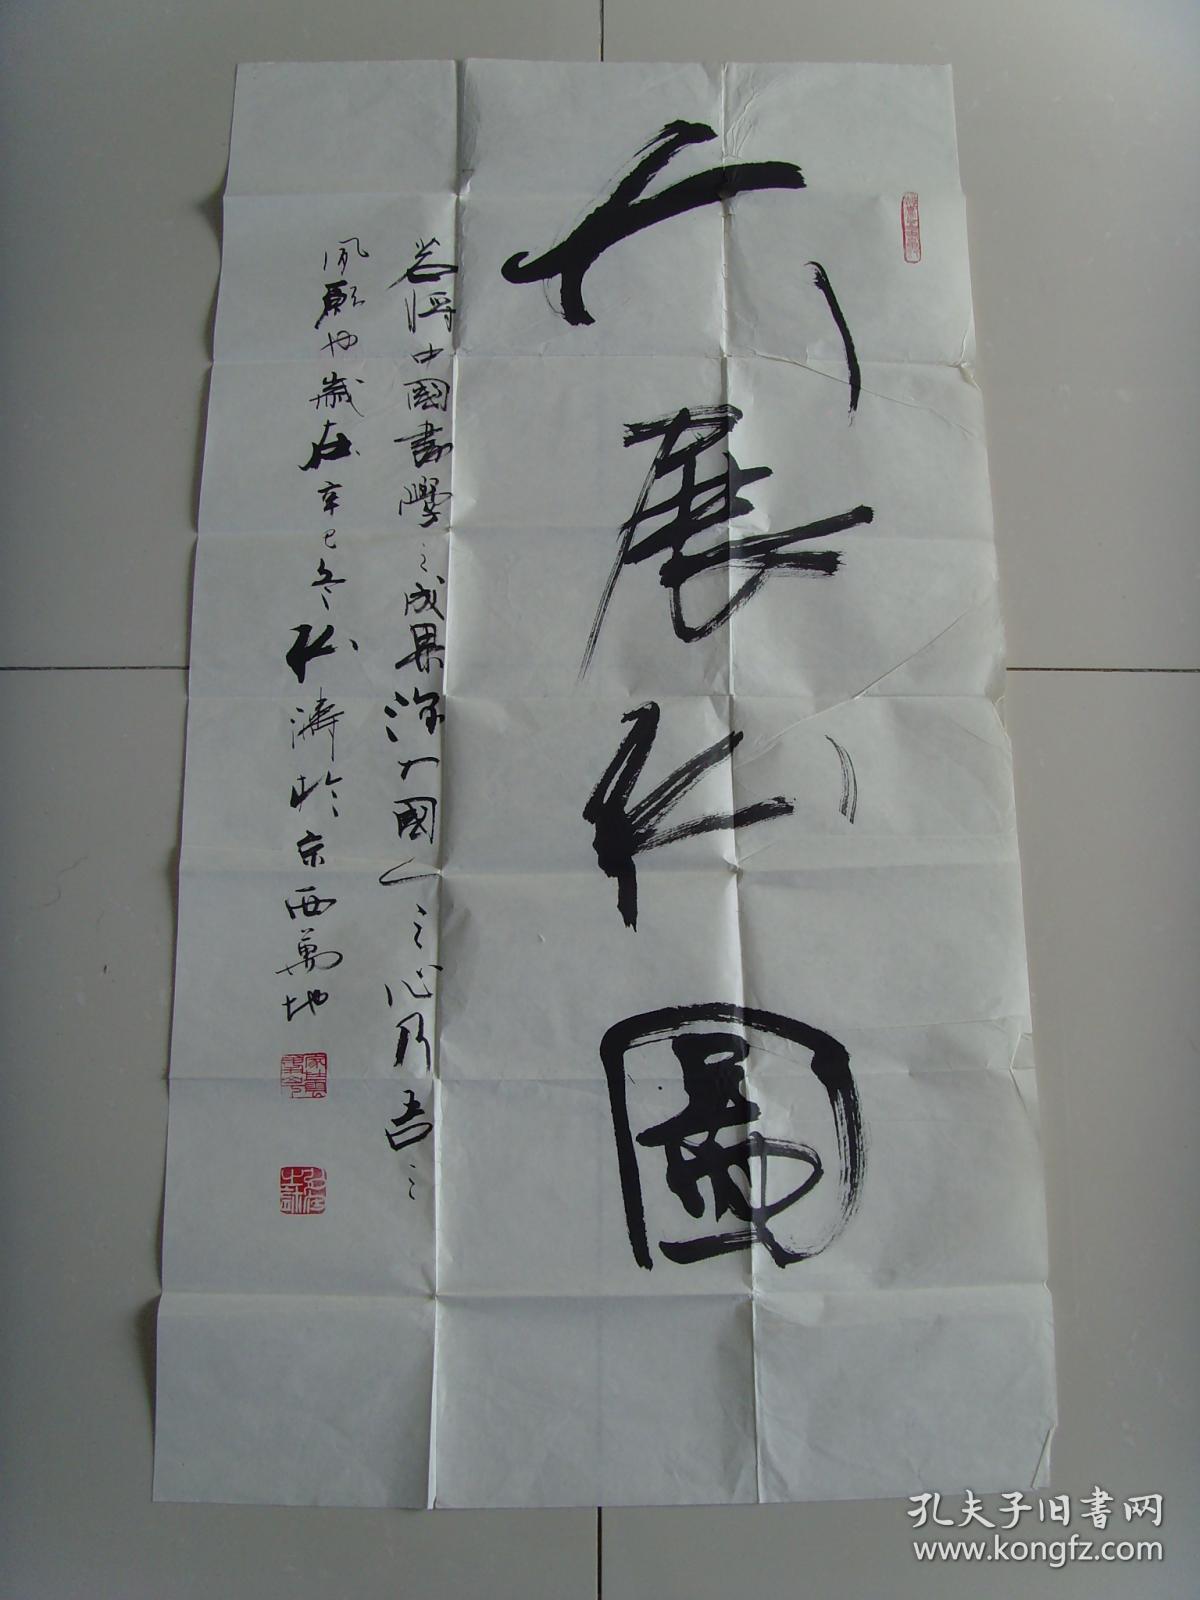 大展宏图
若将中國書學之成果深入國人之心乃吾之
夙願也歲在辛巳冬 濤於京西萬地
孔夫子旧书网
www.kongfz.com